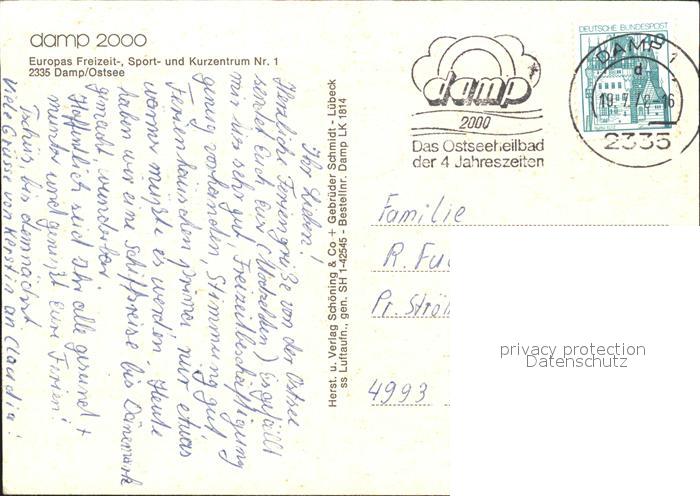 damp 2000
Europas Freizeit-, Sport- und Kurzentrum Nr. 1
2335 Damp/Ostsee
Ihr Lieben!
Herzliche Feriengrüße von der Ostsee
sendet Euch Eure Es gefällt
mir hier sehr gut, Freizeitbeschäftigung
genug vorhanden, Stimmung gut,
Ferienhäuschen prima nur etwas
wärmer müßte es werden. Heute
haben wir eine Schiffsreise bis Dänemark
gemacht, wunderbar.
Hoffentlich seid Ihr alle gesund +
munter und genießt Eure Ferien!
Tschüs, bis demnächst
Viele Grüsse von Kerstin an Claudia!
Herst. u. Verlag Schöning & Co + Gebrüder Schmidt - Lübeck
ss Luftaufn., gen. SH 1-42545 - Bestellnr. Damp LK 1814
damp
2000
Das Ostseeheilbad
der 4 Jahreszeiten
DEUTSCHE BUNDESPOST
40
DAMP 1
d
19.7.78-16
2335
Familie
R.
Pr.
4993
privacy protection
Datenschutz